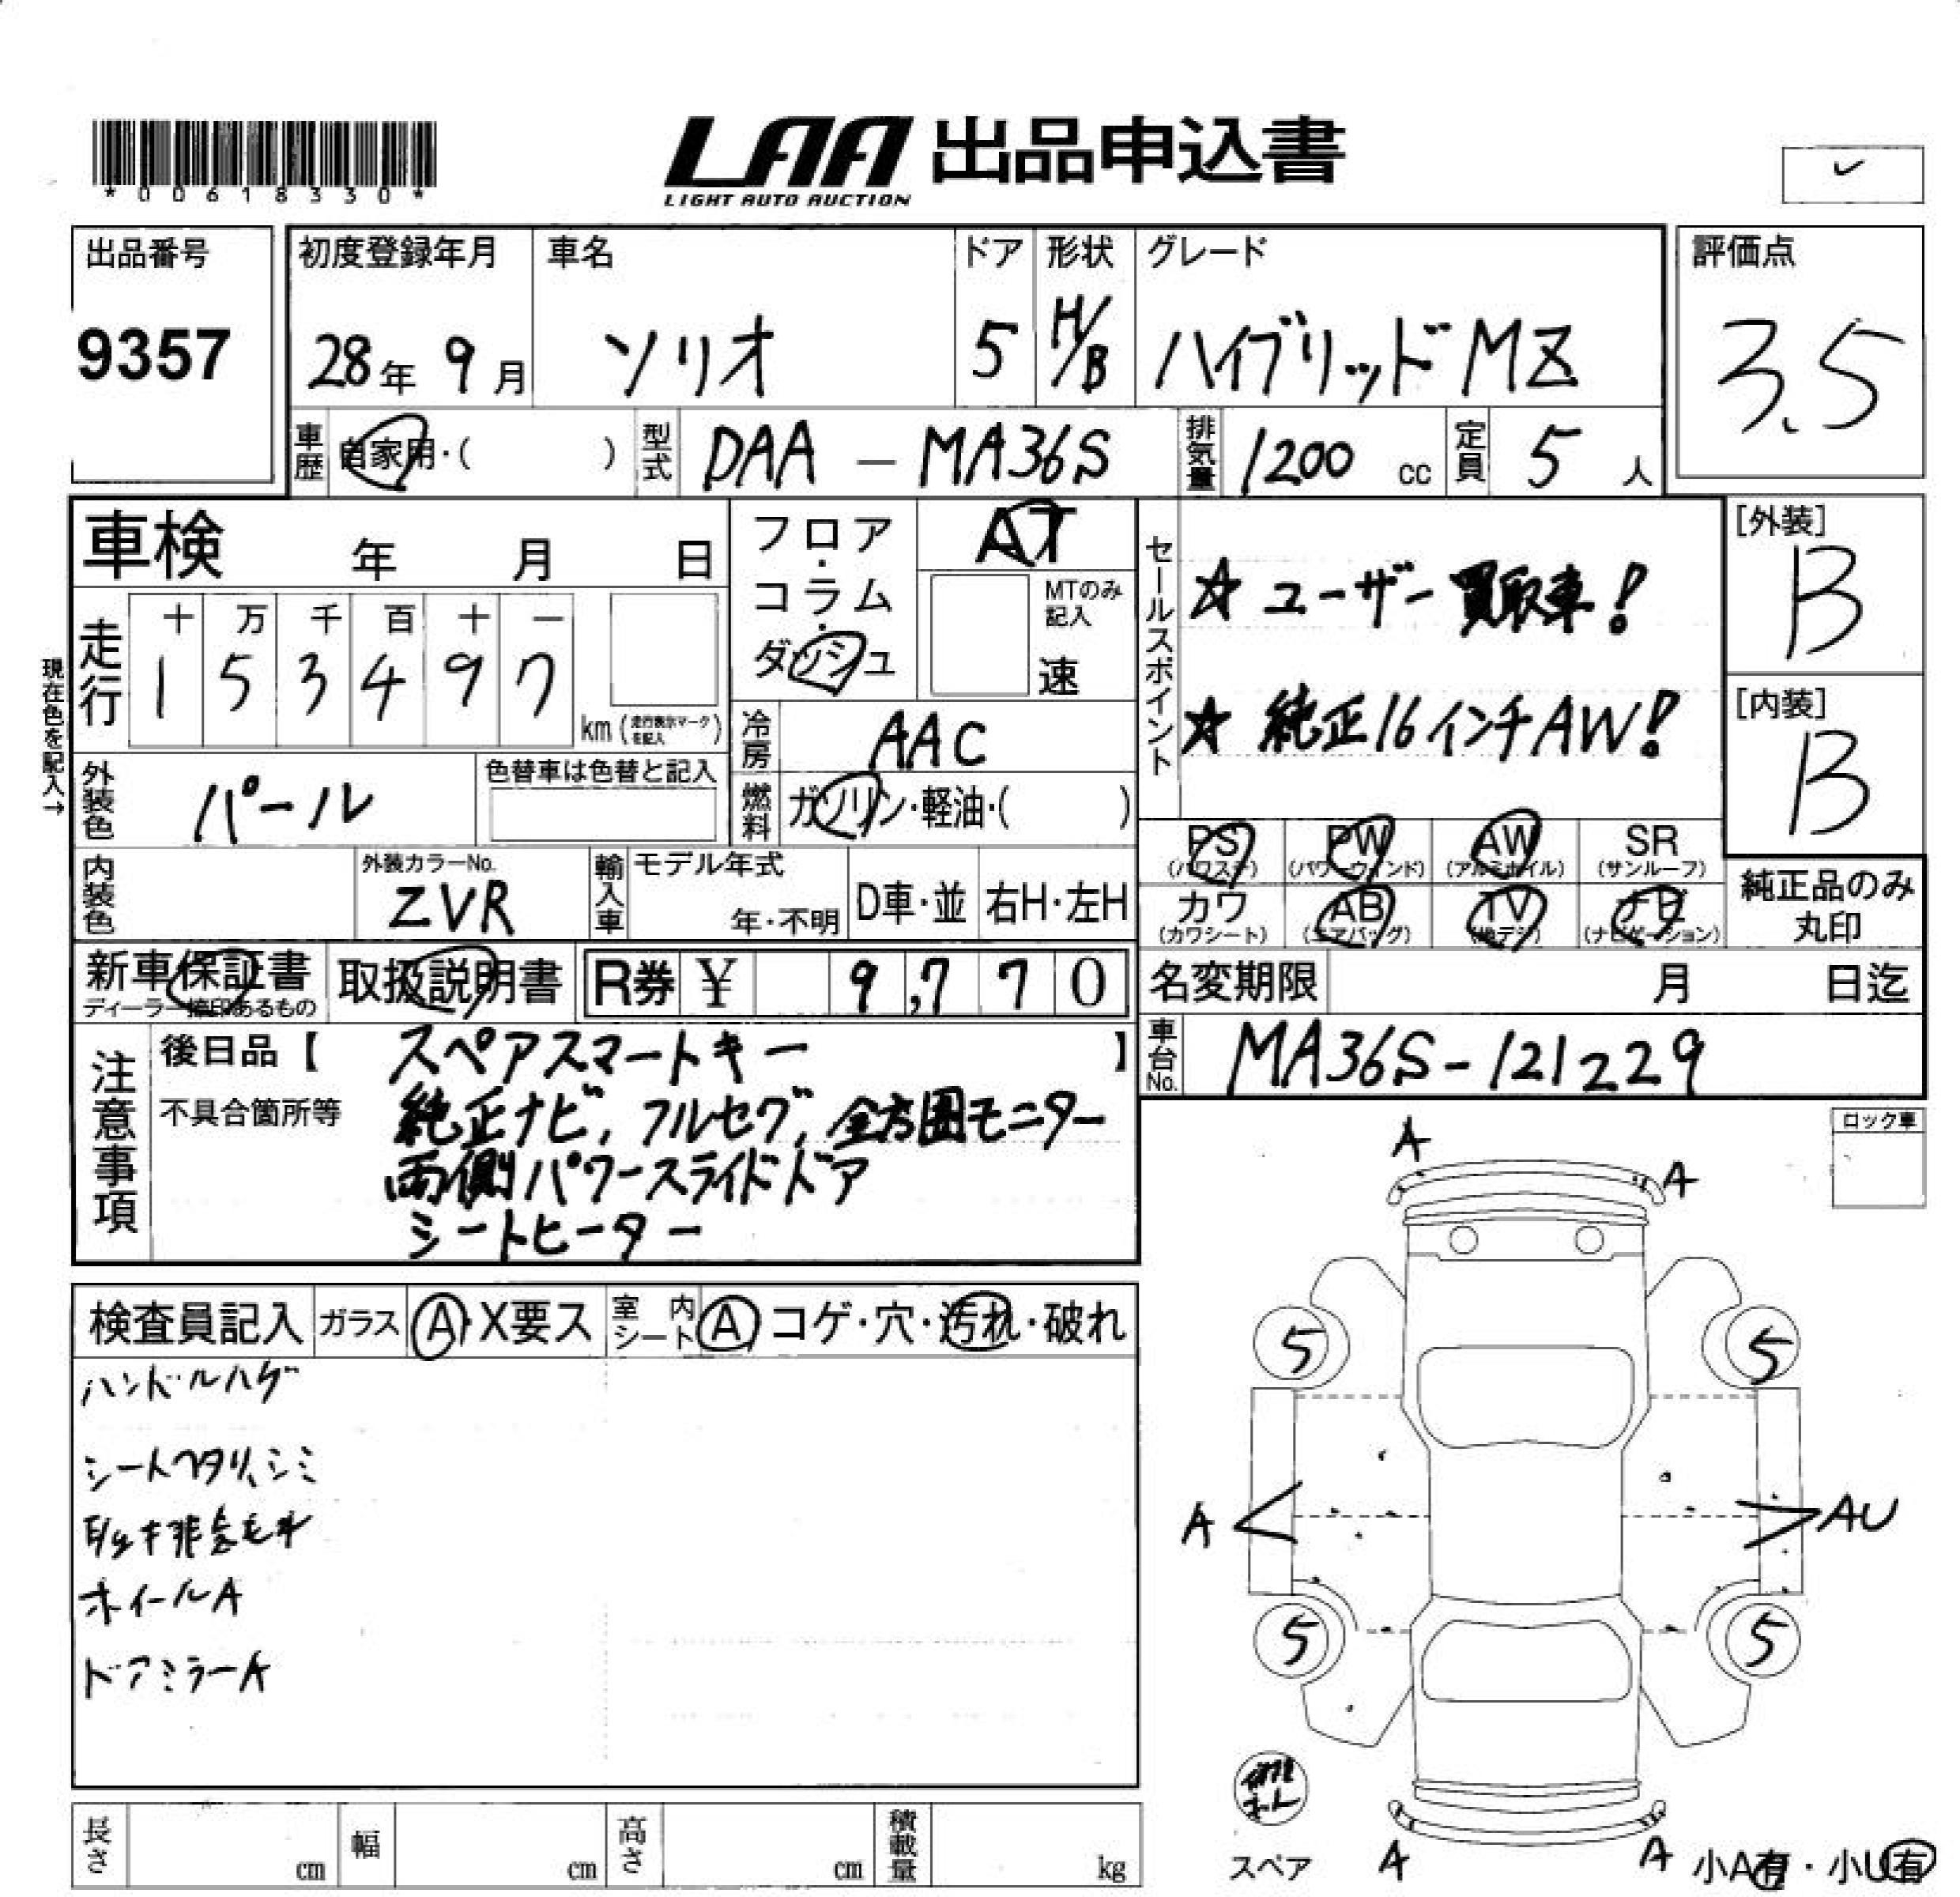 *00618330*
LAA 出品申込書
LIGHT AUTO AUCTION
出品番号
9357
初度登録年月
28年 9月
車名
ソリオ
ドア
5
形状
H/B
グレード
ハイブリッドMZ
評価点
3.5
車歴
自家用・( )
型式
DAA - MA36S
排気量
1200 cc
定員
5 人
車検 年 月 日
フロア・コラム・ダッシュ
AT
MTのみ記入
速
セールスポイント
☆ ユーザー買取車!
☆ 純正16インチAW!
[外装]
B
[内装]
B
現在色を記入→
走行
十 万 千 百 十 一
1 5 3 4 9 7
km (走行表示マークを記入)
冷房
AAC
外装色
パール
色替車は色替と記入
燃料
ガソリン・軽油・( )
PS (パワステ)
PW (パワーウィンド)
AW (アルミホイル)
SR (サンルーフ)
カワ (カワシート)
AB (エアバッグ)
TV (地デジ)
ナビ (ナビゲーション)
純正品のみ丸印
内装色
外装カラーNo.
ZVR
輸入車
モデル年式
年・不明
D車・並
右H・左H
新車保証書
ディーラー捺印あるもの
取扱説明書
R券 ¥ 9,770
名変期限 月 日迄
車台No.
MA36S-121229
注意事項
後日品【 スペアスマートキー 】
不具合箇所等
純正ナビ, フルセグ, 全方囲モニター
両側パワースライドドア
シートヒーター
ロック車
検査員記入
ガラス
A・X要ス
室内シート
A コゲ・穴・汚れ・破れ
ハンドルハゲ
シートヘタリ、シミ
ホイールA
ドアミラーA
A
A
5
5
A
AU
5
5
スペア
A
A
小A有・小U有
長さ cm
幅 cm
高さ cm
積載量 kg